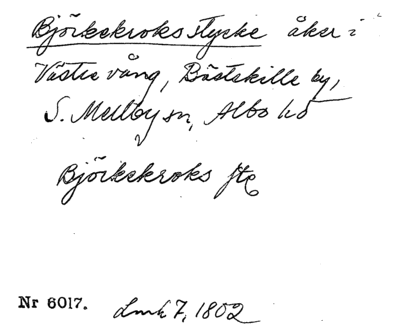 Björkekroks stycke åker i
Västre vång, Bästekille by,
S. Mellby sn, Albo hd
Björkekroks ste
Nr 6017. Lmh 7, 1802